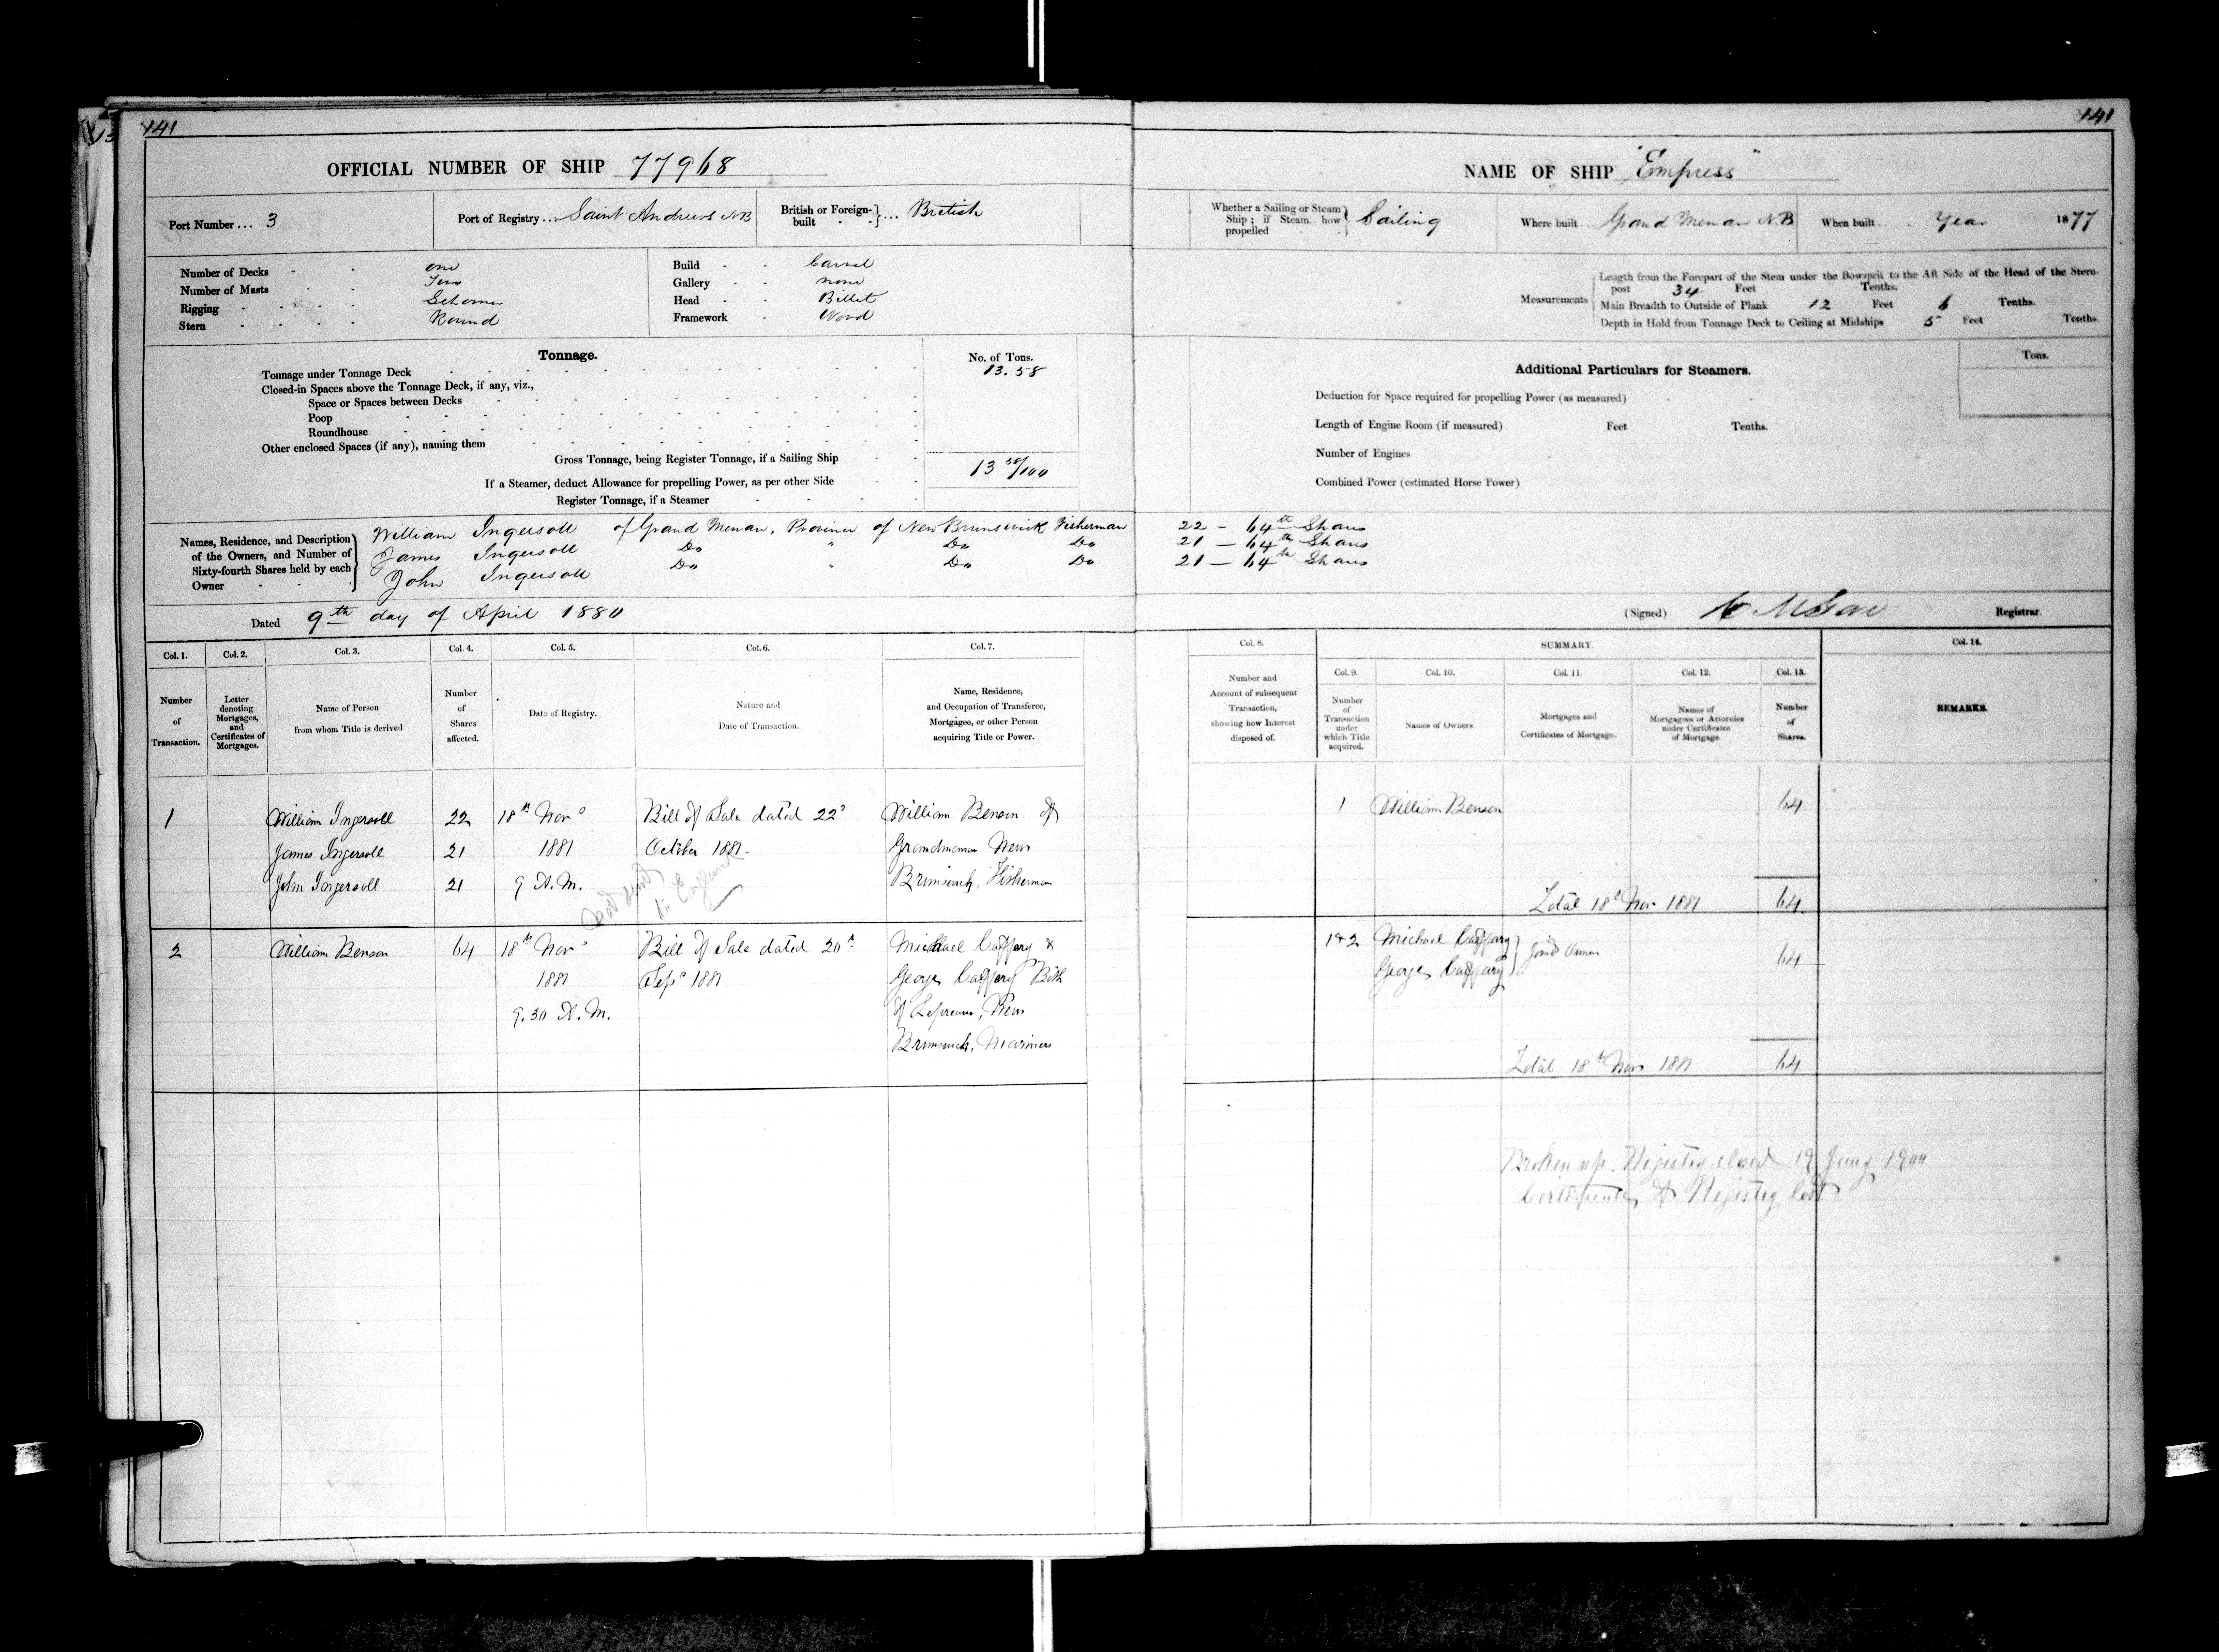 141
OFFICIAL NUMBER OF SHIP 77968
Port Number ... 3
Port of Registry ... Saint Andrews NB
British or Foreign-built } ... British
Number of Decks one
Number of Masts Two
Rigging Schooner
Stern Round
Build Carvel
Gallery none
Head Billet
Framework Wood
Tonnage.
No. of Tons.
Tonnage under Tonnage Deck 13.58
Closed-in Spaces above the Tonnage Deck, if any, viz.,
Space or Spaces between Decks
Poop
Roundhouse
Other enclosed Spaces (if any), naming them
Gross Tonnage, being Register Tonnage, if a Sailing Ship 13 58/100
If a Steamer, deduct Allowance for propelling Power, as per other Side
Register Tonnage, if a Steamer
Names, Residence, and Description
of the Owners, and Number of
Sixty-fourth Shares held by each
Owner
William Ingersoll of Grand Menan, Province of New Brunswick Fisherman
James Ingersoll Do " Do Do
John Ingersoll Do " Do Do
Dated 9th day of April 1880
Col. 1. Col. 2. Col. 3. Col. 4. Col. 5. Col. 6. Col. 7.
Number of Transaction.
Letter denoting Mortgages, and Certificates of Mortgages.
Name of Person from whom Title is derived
Number of Shares affected.
Date of Registry.
Nature and Date of Transaction.
Name, Residence, and Occupation of Transferee, Mortgagee, or other Person acquiring Title or Power.
1 William Ingersoll 22 18th Nov Bill of Sale dated 22 William Benson of
James Ingersoll 21 1881 October 1881 Grandmanan New
John Ingersoll 21 9 A.M. Brunswick, Fisherman
to England
2 William Benson 64 18th Nov Bill of Sale dated 20 Michael Caffary &
1881 Sep 1881 George Caffary Both
9.30 A.M. of Lepreau, New
Brunswick, Mariners
141
NAME OF SHIP "Empress"
Whether a Sailing or Steam Ship; if Steam, how propelled } Sailing
Where built Grand Menan N.B
When built Year 1877
Measurements
Length from the Forepart of the Stem under the Bowsprit to the Aft Side of the Head of the Stern-
post 34 Feet Tenths.
Main Breadth to Outside of Plank 12 Feet 6 Tenths.
Depth in Hold from Tonnage Deck to Ceiling at Midships 5 Feet Tenths.
Tons.
Additional Particulars for Steamers.
Deduction for Space required for propelling Power (as measured)
Length of Engine Room (if measured) Feet Tenths.
Number of Engines
Combined Power (estimated Horse Power)
22 - 64th Shares
21 - 64th Shares
21 - 64th Shares
(Signed) Registrar.
Col. 8. SUMMARY. Col. 14.
Col. 9. Col. 10. Col. 11. Col. 12. Col. 13.
Number and Account of subsequent Transaction, showing how Interest disposed of.
Number of Transaction under which Title acquired.
Names of Owners.
Mortgages and Certificates of Mortgage.
Names of Mortgagees or Attornies under Certificates of Mortgage.
Number of Shares.
REMARKS.
1 William Benson 64
Total 18th Nov 1881 64
1&2 Michael Caffary } Joint Owners 64
George Caffary
Total 18th Nov 1881 64
Broken up. Registry closed 19 Jany 1900
Certificate of Registry lost